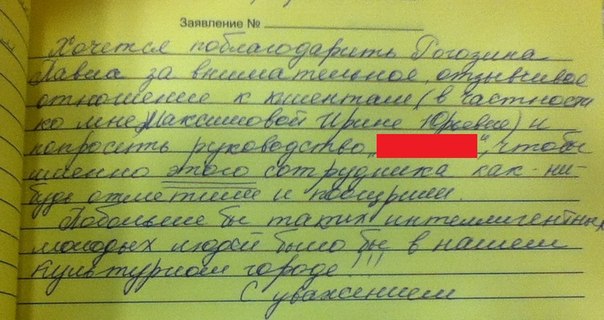 Заявление №
Хочется поблагодарить Рогозина
Павла за внимательное, отзывчивое
отношение к клиентам (в частност
ко мне, Максимовой Ирине Юрьевне) и
попросить руководство „ “, чтобы
именно этого сотрудника как-ни-
будь отметили и поощрили.
Побольше бы таких интеллигентных
молодых людей было бы в нашем
культурном городе!!!
С уважением